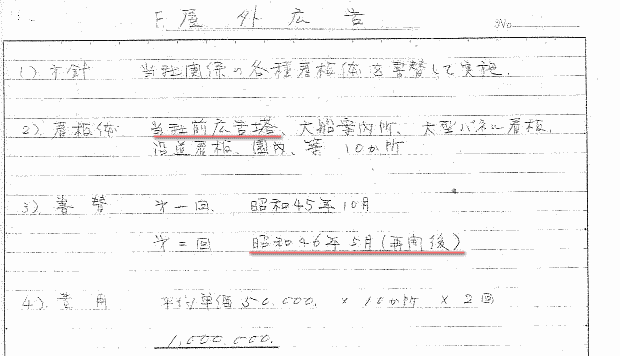 F. 屋外広告
No.
1) 方針 当社関係の各種看板体を書替して実施.
2) 看板体 当社前広告塔、大船案内所、大型パネル看板、
沿道看板、園内、等 10か所
3) 書替 才一回. 昭和45年10月
才二回 昭和46年5月(再開後)
4) 費用 平均単価 50.000. × 10か所 × 2回
1,000.000.